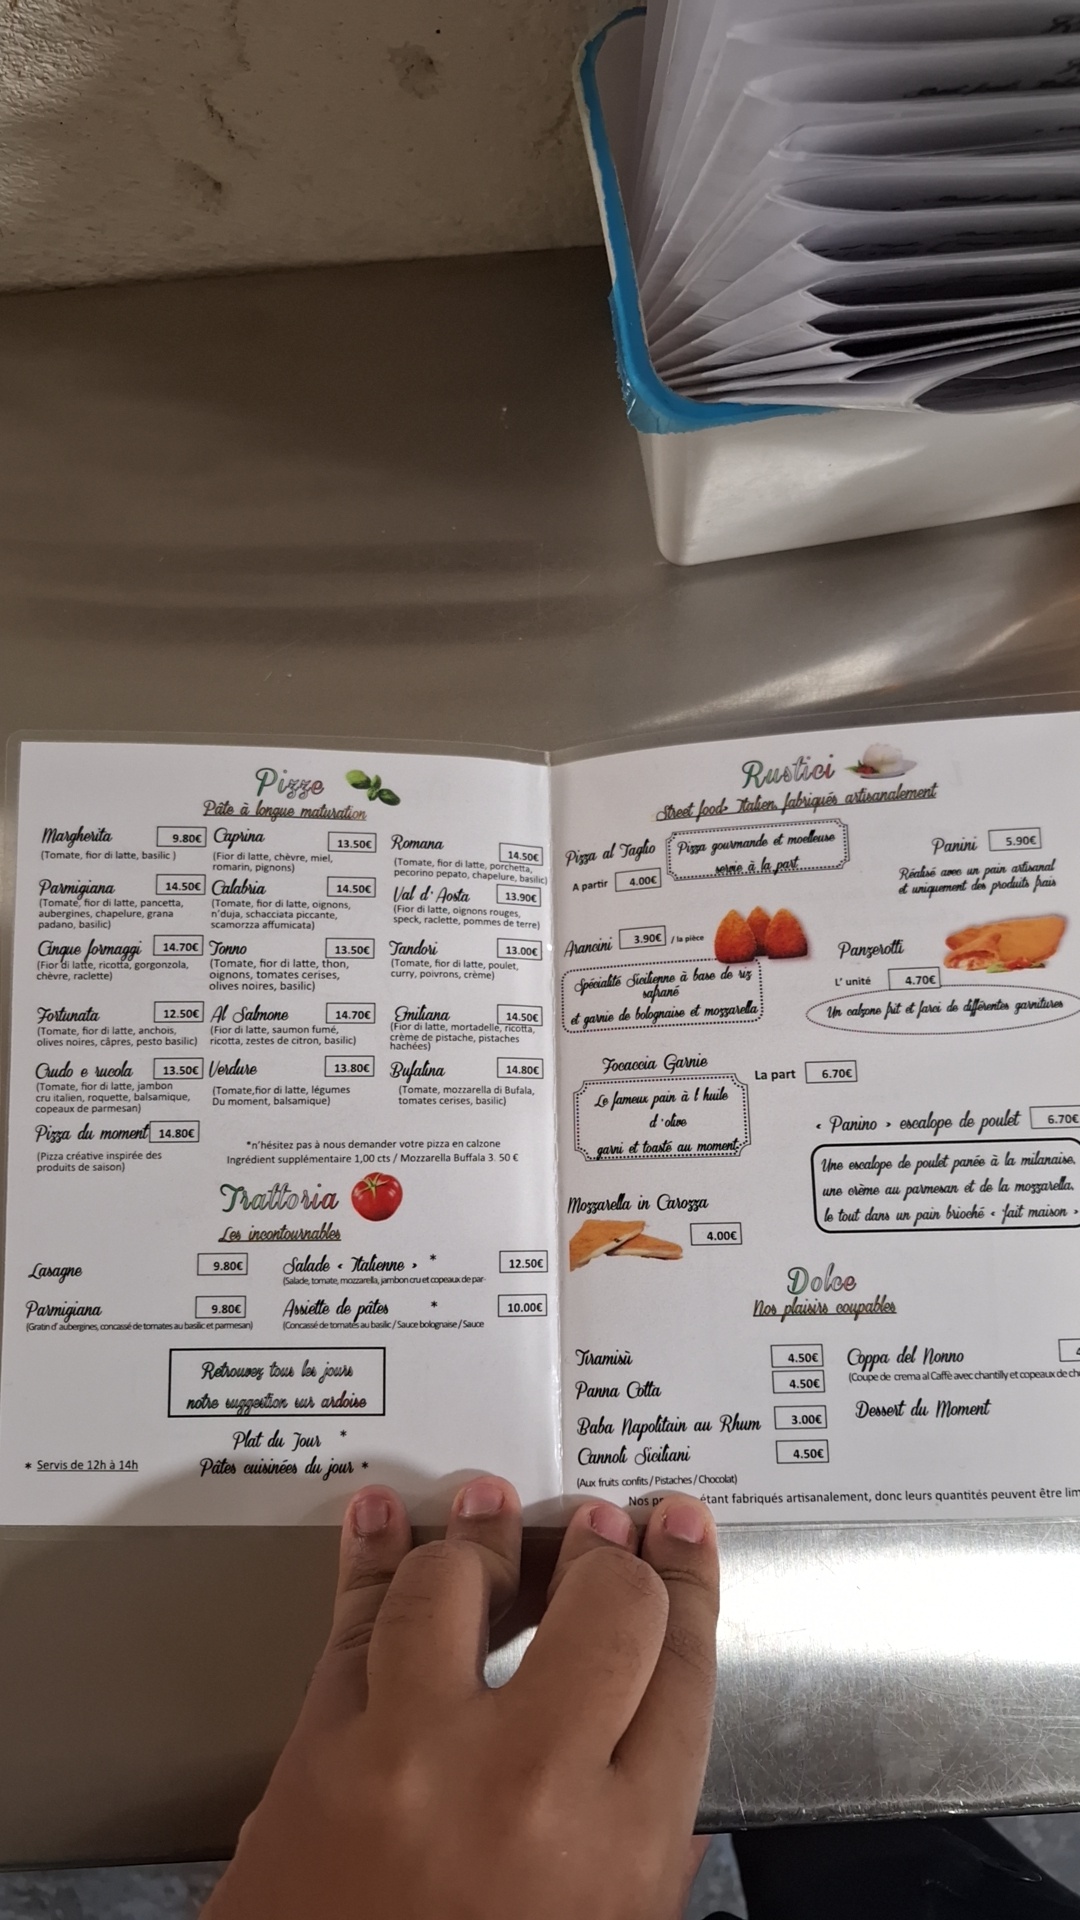 Pizze
Pâte à longue maturation
Margherita 9.80€
(Tomate, fior di latte, basilic )
Parmigiana 14.50€
(Tomate, fior di latte, pancetta,
aubergines, chapelure, grana
padano, basilic)
Cinque formaggi 14.70€
(Fior di latte, ricotta, gorgonzola,
chèvre, raclette)
Fortunata 12.50€
(Tomate, fior di latte, anchois,
olives noires, câpres, pesto basilic)
Crudo e rucola 13.50€
(Tomate, fior di latte, jambon
cru italien, roquette, balsamique,
copeaux de parmesan)
Pizza du moment 14.80€
(Pizza créative inspirée des
produits de saison)
Caprina 13.50€
(Fior di latte, chèvre, miel,
romarin, pignons)
Calabria 14.50€
(Tomate, fior di latte, oignons,
n'duja, schacciata piccante,
scamorzza affumicata)
Tonno 13.50€
(Tomate, fior di latte, thon,
oignons, tomates cerises,
olives noires, basilic)
Al Salmone 14.70€
(Fior di latte, saumon fumé,
ricotta, zestes de citron, basilic)
Verdure 13.80€
(Tomate,fior di latte, légumes
Du moment, balsamique)
Romana 14.50€
(Tomate, fior di latte, porchetta,
pecorino pepato, chapelure, basilic)
Val d' Aosta 13.90€
(Fior di latte, oignons rouges,
speck, raclette, pommes de terre)
Tandori 13.00€
(Tomate, fior di latte, poulet,
curry, poivrons, crème)
Emiliana 14.50€
(Fior di latte, mortadelle, ricotta,
crème de pistache, pistaches
hachées)
Bufalina 14.80€
(Tomate, mozzarella di Bufala,
tomates cerises, basilic)
*n'hésitez pas à nous demander votre pizza en calzone
Ingrédient supplémentaire 1,00 cts / Mozzarella Buffala 3. 50 €
Trattoria
Les incontournables
Lasagne 9.80€
Parmigiana 9.80€
(Gratin d' aubergines, concassé de tomates au basilic et parmesan)
Salade « Italienne » * 12.50€
(Salade, tomate, mozzarella, jambon cru et copeaux de par-
Assiette de pâtes * 10.00€
(Concassé de tomates au basilic / Sauce bolognaise / Sauce
Retrouvez tous les jours
notre suggestion sur ardoise
Plat du Jour *
Pâtes cuisinées du jour *
* Servis de 12h à 14h
Rustici
Street food Italien, fabriqués artisanalement
Pizza al Taglio
A partir 4.00€
Pizza gourmande et moelleuse
servie à la part
Panini 5.90€
Réalisé avec un pain artisanal
et uniquement des produits frais
Arancini 3.90€ / la pièce
Spécialité Sicilienne à base de riz
safrané
et garnie de bolognaise et mozzarella
Panzerotti
L' unité 4.70€
Un calzone frit et farci de différentes garnitures
Focaccia Garnie
La part 6.70€
Le fameux pain à l'huile
d'olive
garni et toasté au moment
« Panino » escalope de poulet 6.70€
Une escalope de poulet panée à la milanaise,
une crème au parmesan et de la mozzarella,
le tout dans un pain brioché « fait maison »
Mozzarella in Carozza
4.00€
Dolce
Nos plaisirs coupables
Tiramisù 4.50€
Panna Cotta 4.50€
Baba Napolitain au Rhum 3.00€
Cannoli Siciliani 4.50€
(Aux fruits confits / Pistaches / Chocolat)
Coppa del Nonno
(Coupe de crema al Caffè avec chantilly et copeaux de
Dessert du Moment
Nos étant fabriqués artisanalement, donc leurs quantités peuvent être